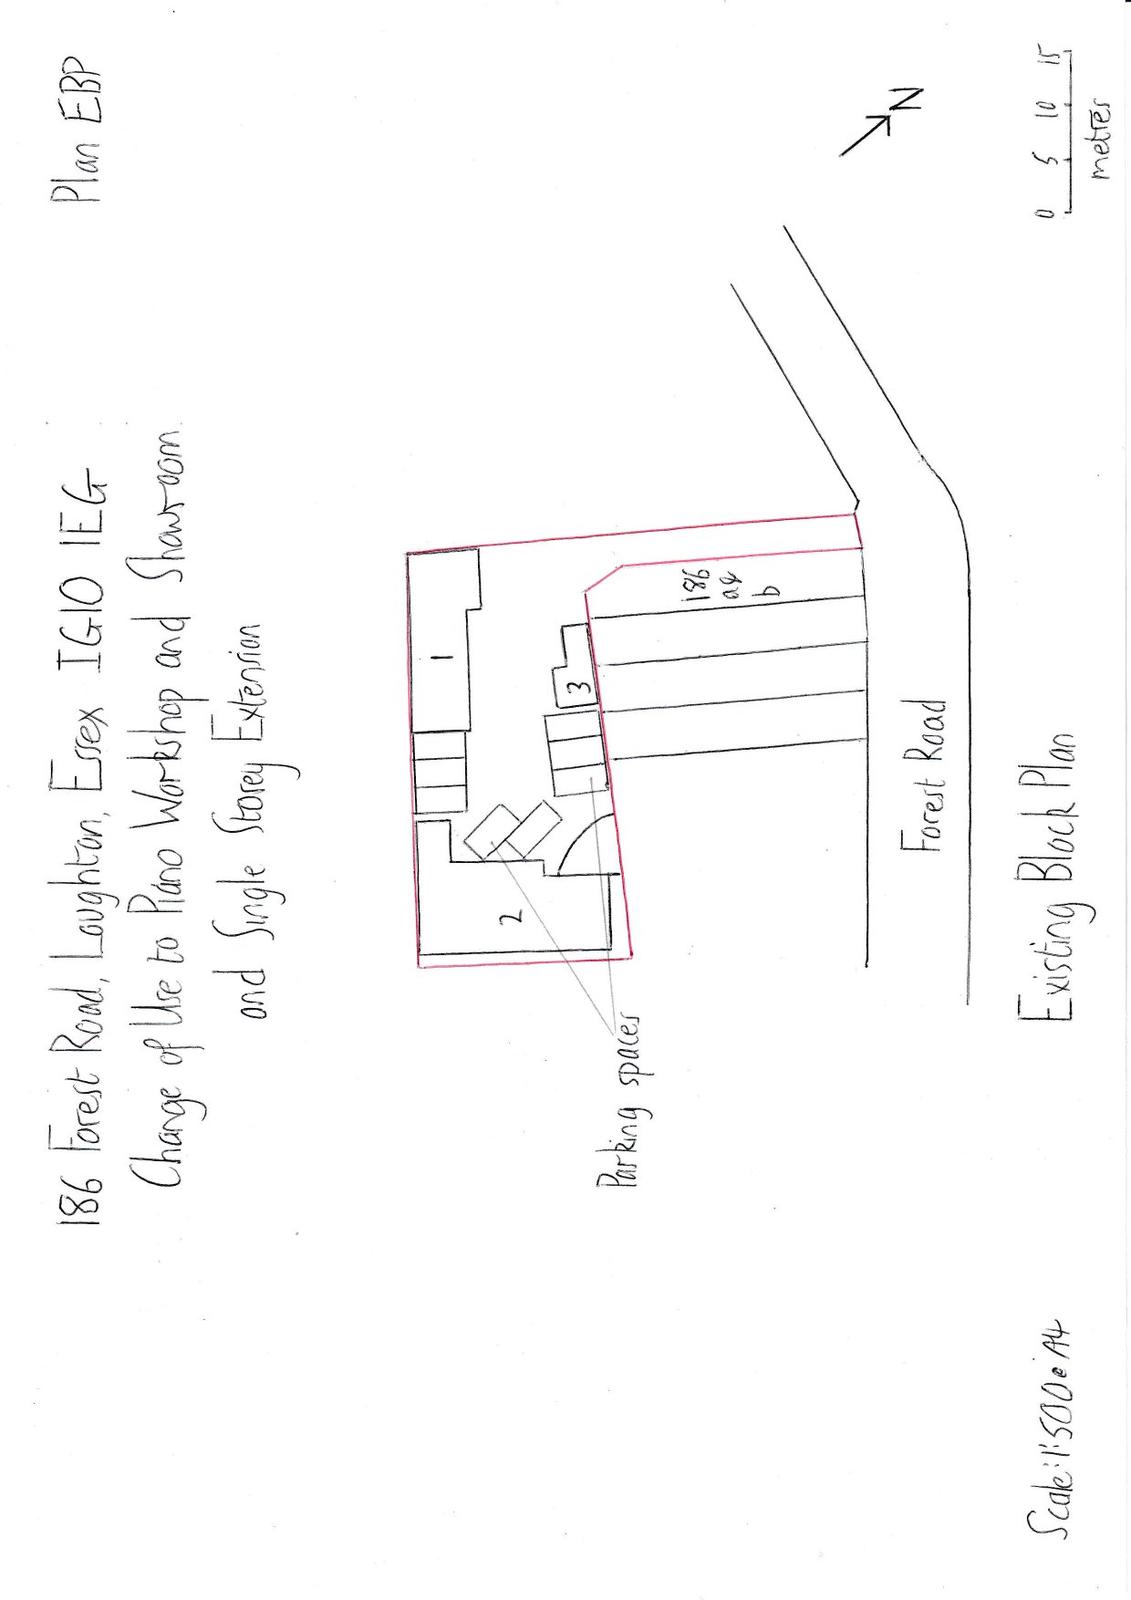 186 Forest Road, Loughton, Essex IG10 1EG
Plan EBP
Change of Use to Piano Workshop and Showroom
and Single Storey Extension
1
2
3
186
a&
b
N
Parking spaces
Forest Road
Scale: 1:500@A4
Existing Block Plan
0 5 10 15
metres